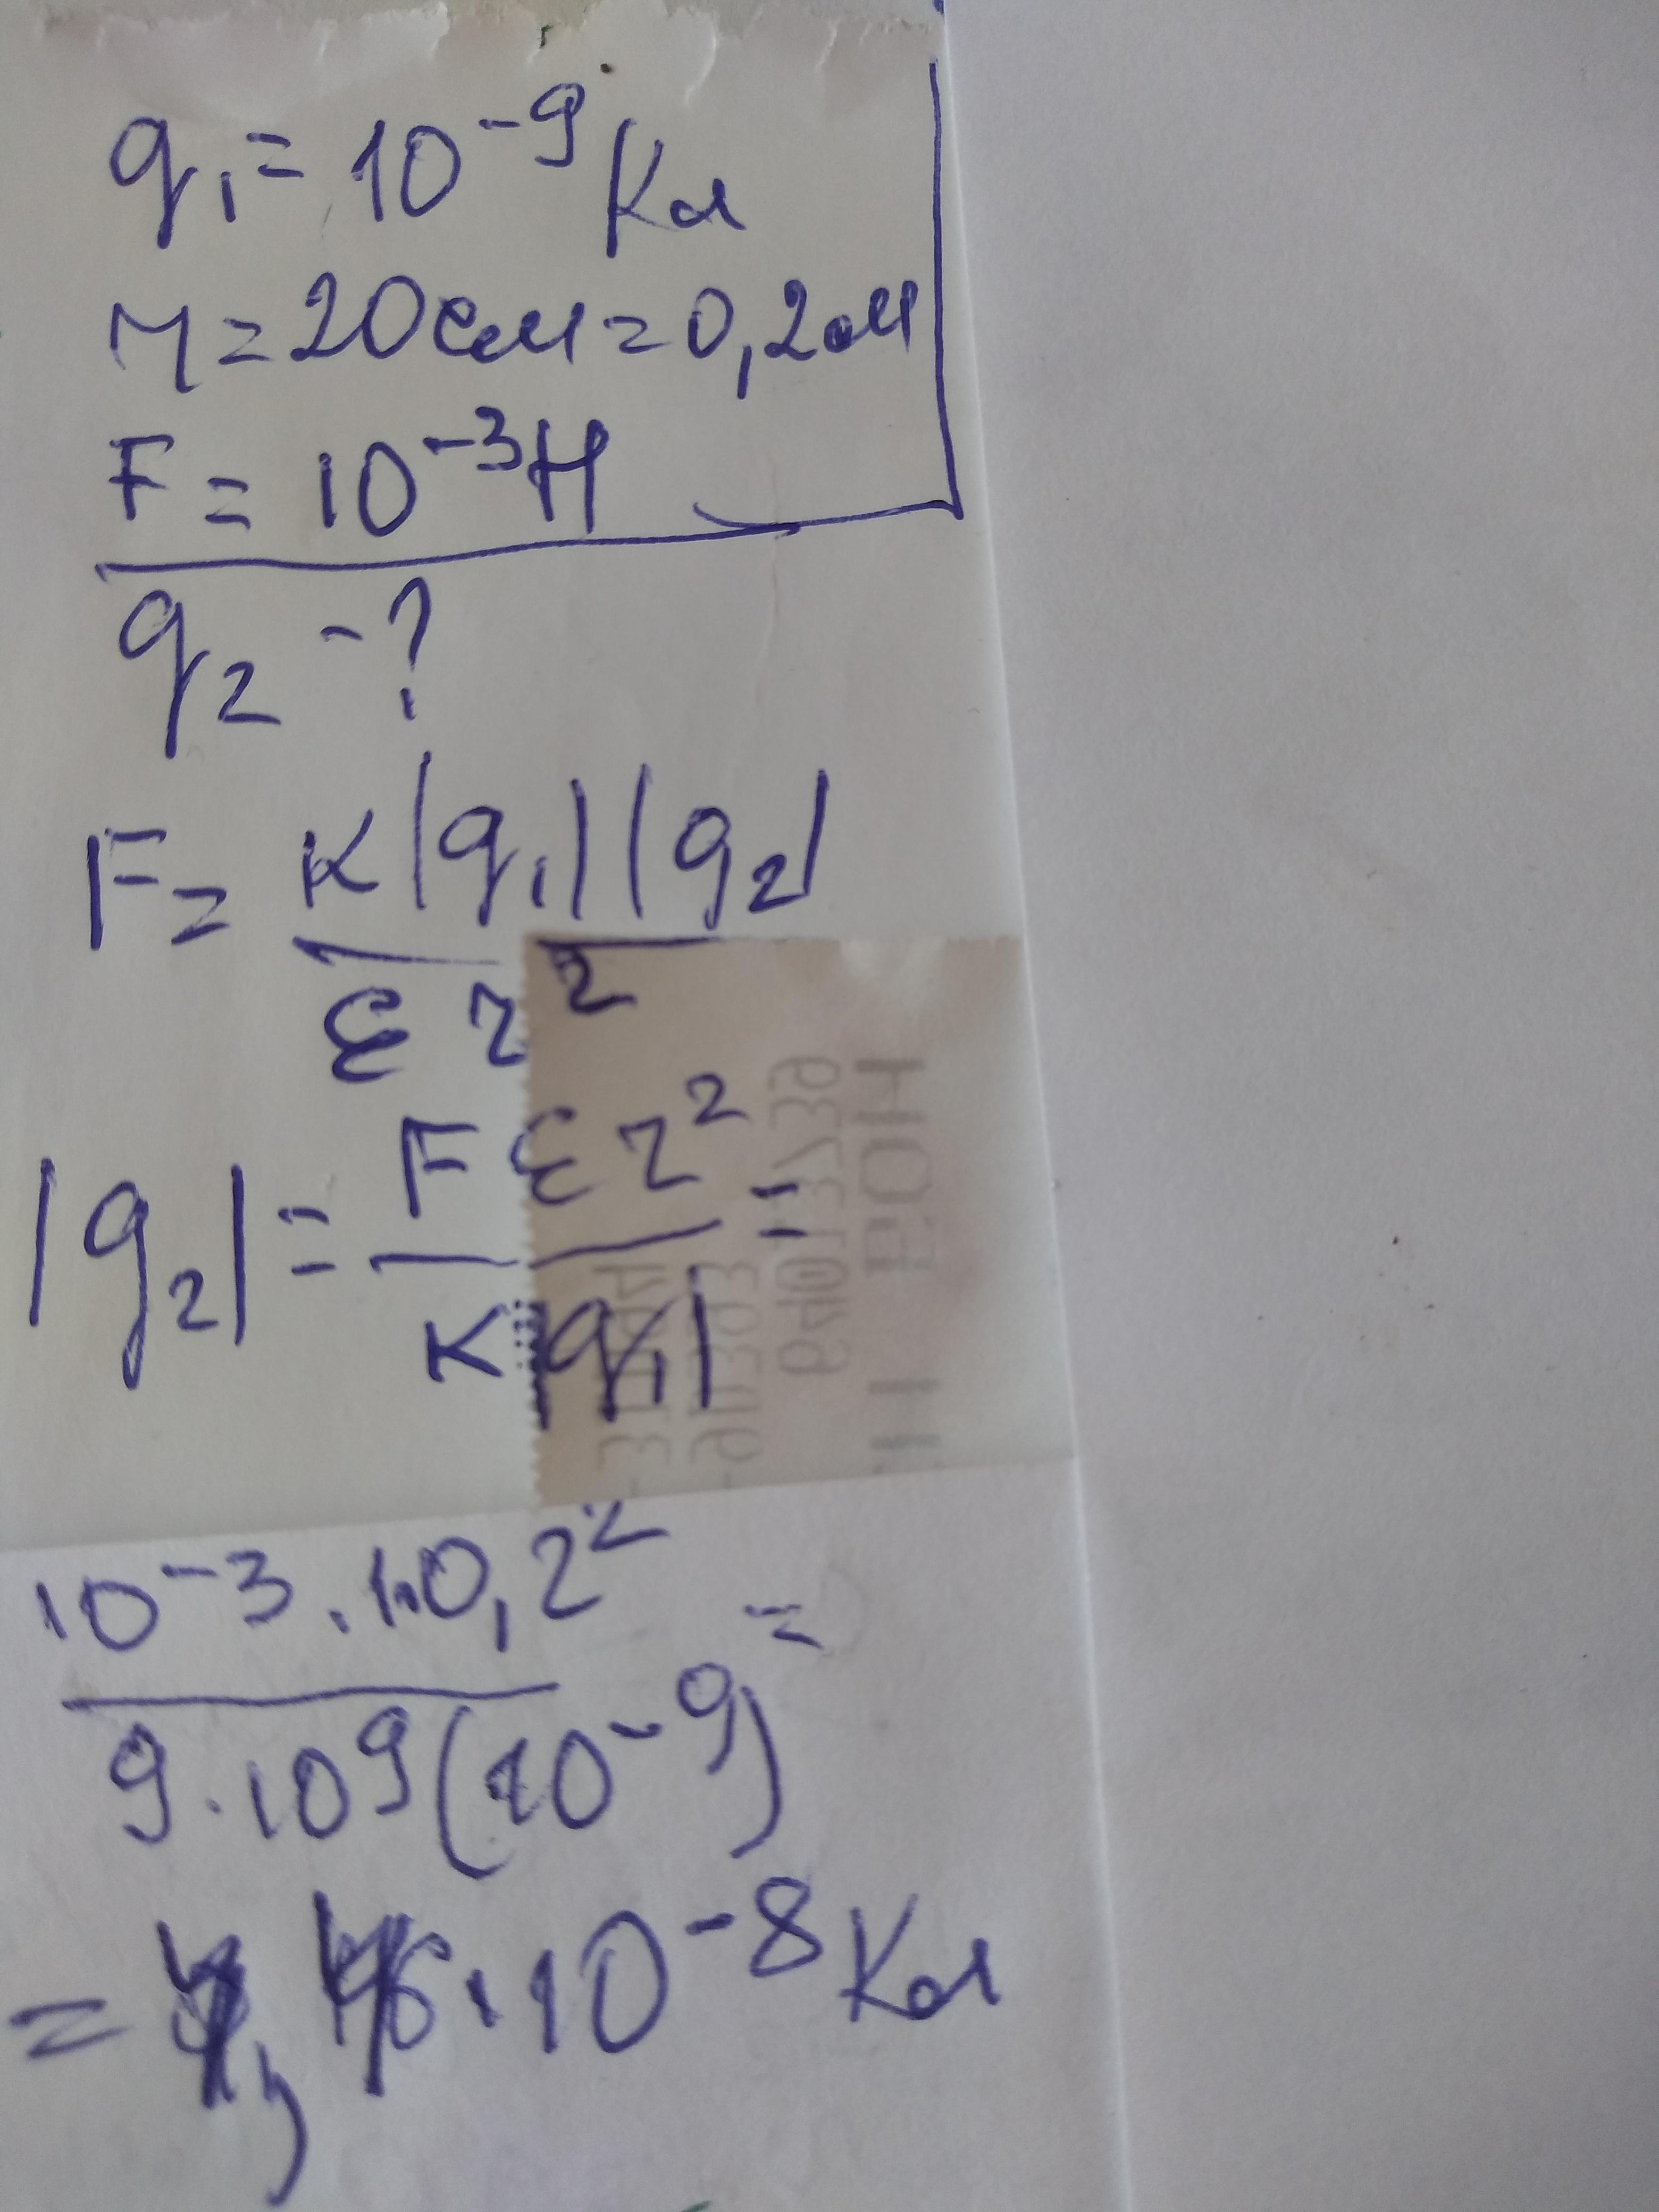 q₁ = 10⁻⁹ Кл
r = 20см = 0,2м
F = 10⁻³ Н
q₂ - ?
F = K|q₁||q₂|
ε r²
|q₂| = F ε r² =
K|q₁|
10⁻³ · 1 · 0,2² =
9 · 10⁹ (10⁻⁹)
= 4,46 · 10⁻⁸ Кл